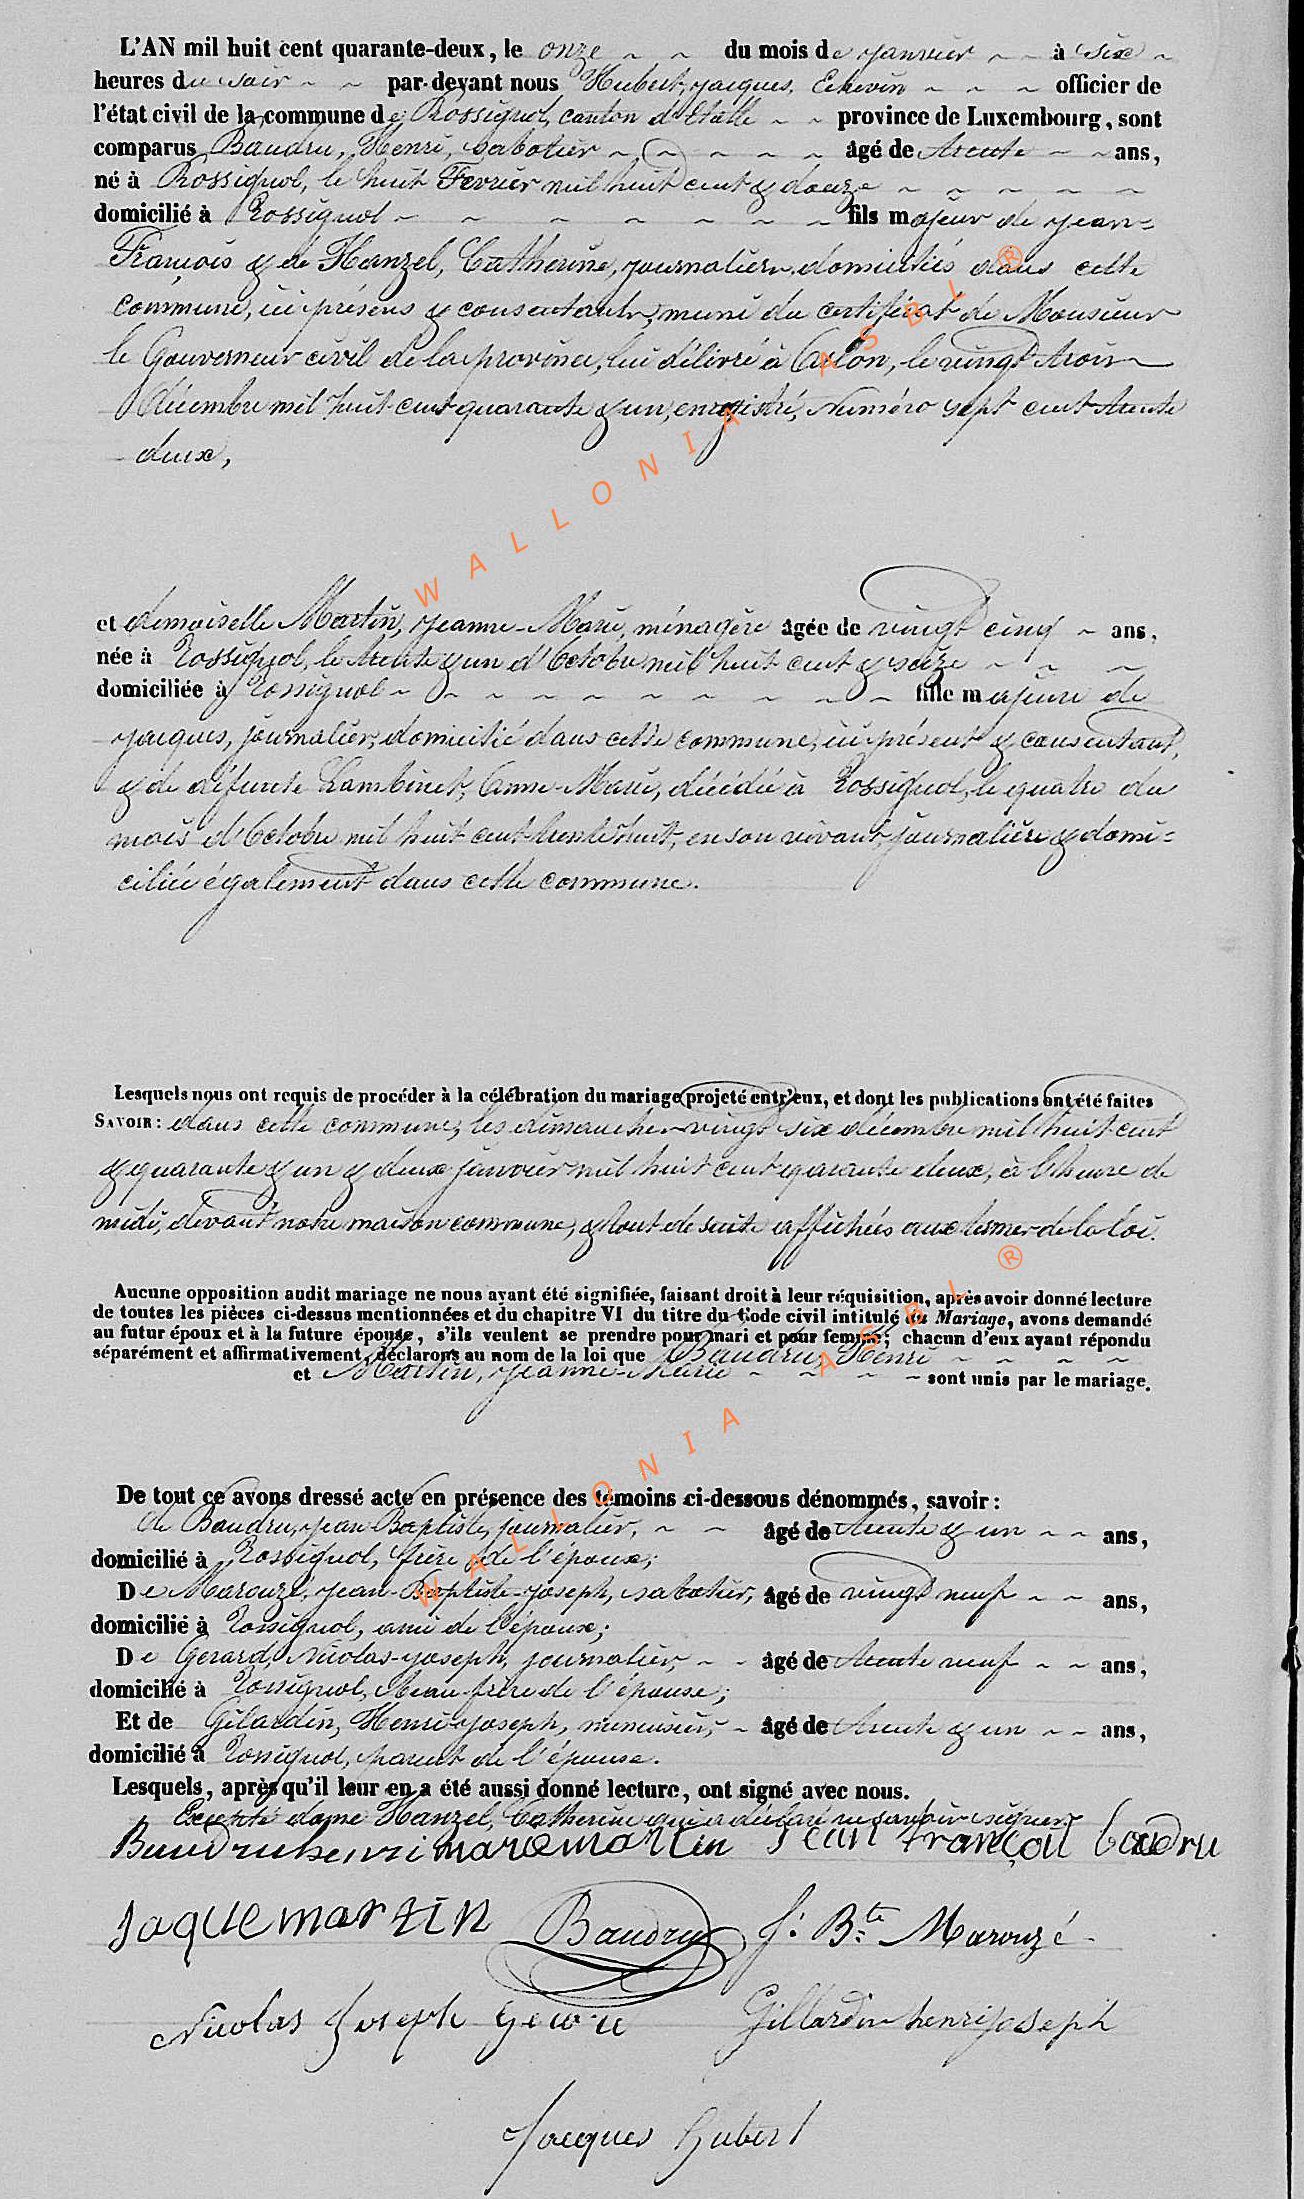 L'AN mil huit cent quarante-deux, le onze du mois de janvier à six
heures du soir par-devant nous Hubert, jacques, Echevin officier de
l'état civil de la commune de Rossignol, canton d'Etalle province de Luxembourg, sont
comparus Baudru, Henri, sabotier âgé de trente ans,
né à Rossignol, le huit Fevrier mil huit cent & douze
domicilié à Rossignol fils majeur de jean=
François & de Hanzel, Catherine, journaliers domiciliés dans cette
commune, ici présens & consentants, muni du certificat de Monsieur
le Gouverneur civil de la province, lui délivré à Arlon, le vingt trois
décembre mil huit cent quarante & un, enregistré, Numéro sept cent trente
deux,
et demoiselle Martin, jeanne-Marie, ménagère âgée de vingt cinq ans,
née à Rossignol, le trente & un d'Octobre mil huit cent & seize
domiciliée à Rossignol fille majeure de
jacques, journalier, domicilié dans cette commune, ici présent & consentant,
& de défunte Lambinet, Anne-Marie, décédée à Rossignol, le quatre du
mois d'Octobre mil huit cent trente huit, en son vivant, journalière & domi=
ciliée également dans cette commune.
Lesquels nous ont requis de procéder à la célébration du mariage projeté entr'eux, et dont les publications ont été faites
SAVOIR: dans cette commune, les dimanches vingt six décembre mil huit cent
& quarante & un & deux janvier mil huit cent quarante deux, à l'heure de
midi, devant notre maison commune, & tout de suite affichées aux termes de la loi.
Aucune opposition audit mariage ne nous ayant été signifiée, faisant droit à leur réquisition, après avoir donné lecture
de toutes les pièces ci-dessus mentionnées et du chapitre VI du titre du Code civil intitulé du Mariage, avons demandé
au futur époux et à la future épouse, s'ils veulent se prendre pour mari et pour femme; chacun d'eux ayant répondu
séparément et affirmativement, déclarons au nom de la loi que Baudru, Henri
et Martin, jeanne-Marie sont unis par le mariage.
De tout ce avons dressé acte en présence des témoins ci-dessous dénommés, savoir:
de Baudru, jean Baptiste, journalier, âgé de trente & un ans,
domicilié à Rossignol, frère de l'époux;
De Marouzé, jean-Baptiste-joseph, sabotier, âgé de vingt neuf ans,
domicilié à Rossignol, ami de l'époux;
De Gerard, Nicolas-joseph, journalier, âgé de trente neuf ans,
domicilié à Rossignol, beau frère de l'épouse;
Et de Gilardin, Henri-joseph, menuisier, âgé de trente & un ans,
domicilié à Rossignol, parent de l'épouse.
Lesquels, après qu'il leur en a été aussi donné lecture, ont signé avec nous.
Excepté dame Hanzel, Catherine qui a déclaré ne savoir signer
Baudru henri martin Jean françoi baudru
jaque martin Baudru J: B:te Marouzé
Nicolas Joseph Gillardin henri joseph
Jacques Hubert
WALLONIA ASBL ®
WALLONIA ASBL ®